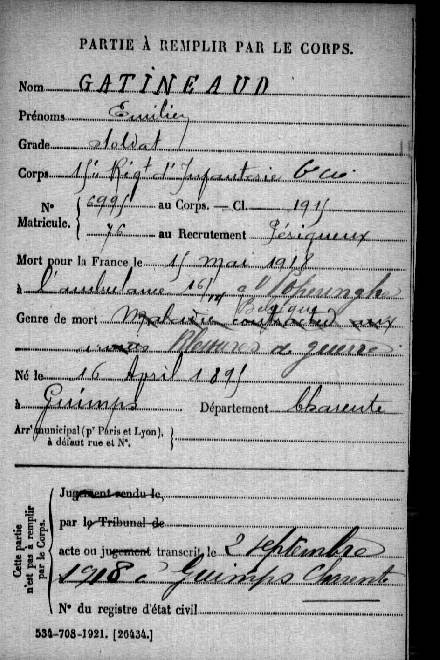 PARTIE À REMPLIR PAR LE CORPS.
Nom GATINEAUD
Prénoms Emilien
Grade Soldat
Corps 15e Régt d'Infanterie 6e Cie
N° Matricule. { 6995 au Corps. — Cl. 1915
76 au Recrutement Périgueux
Mort pour la France le 15 mai 1918
à l'ambulance 16/14 à
Belgique
Genre de mort Maladie contractée aux
Blessures de guerre
Né le 16 April 1895
à Guimps Département Charente
Arrt municipal (pr Paris et Lyon), à défaut rue et N°. }
Cette partie n'est pas à remplir par le Corps.
Jugement rendu le
par le Tribunal de
acte ou jugement transcrit le 2 septembre
1918 à Guimps Charente
N° du registre d'état civil
534-708-1921. [26434.]